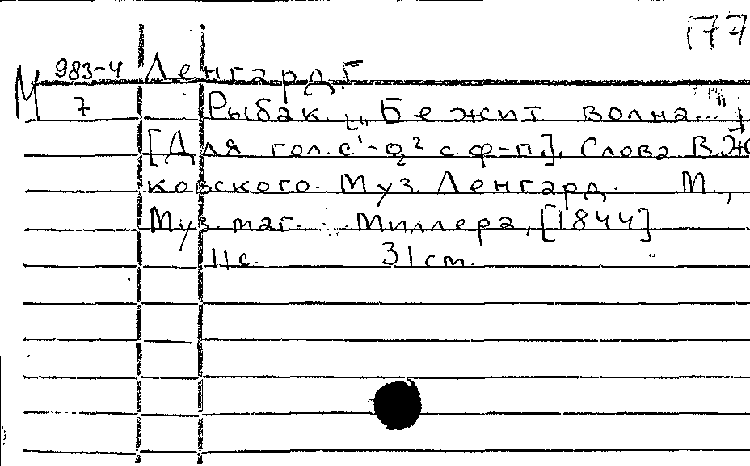 177
М 983-4 Ленгард Г.
7 Рыбак. „Бежит волна..."
[Для гол. c¹-g² с ф-п.]. Слова В. Ж
ковского. Муз. Ленгард. М.,
Муз. маг. Миллера, [1844]
11 с. 31 см.